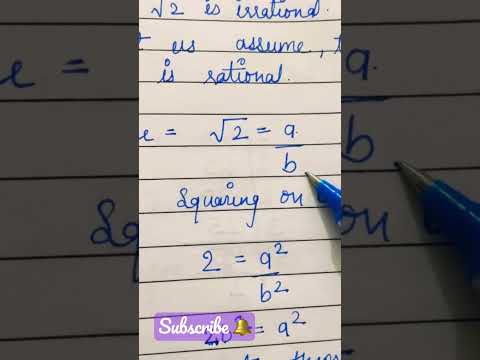 √2 is irrational.
us assume,
is rational.
= √2 = a/b
Squaring on
2 = a²/b²
Subscribe
= a²